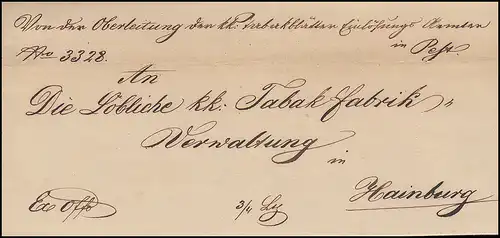 Von der Oberleitung der kk: Tabakblätter Einlösungs Aemter
in Pest.
No 3328.
An
Die Löbliche kk: Tabak Fabrik
Verwaltung
in
Hainburg
Ex offo
3/4